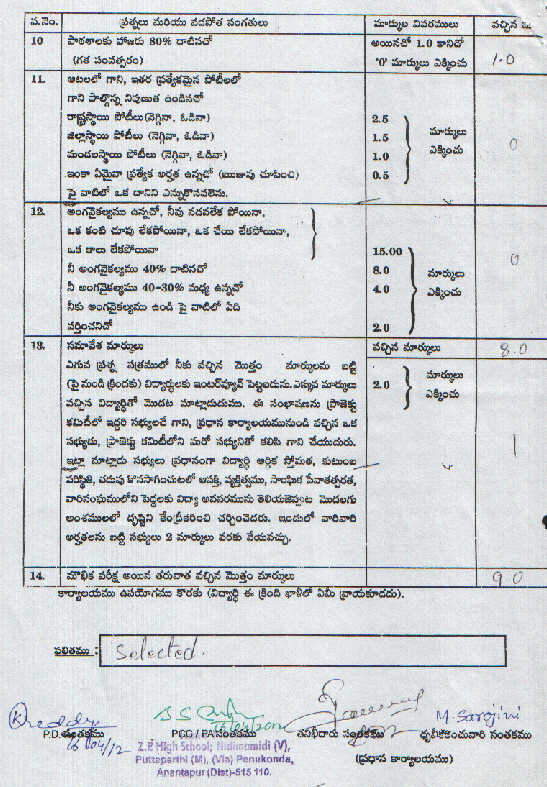 వ.నెం. ప్రశ్నలు మరియు వడపోత సంగతులు మార్కుల వివరములు వచ్చిన
10 పాఠశాలకు హాజరు 80% దాటినచో అయినచో 1.0 కానిచో
(గత సంవత్సరం) '0' మార్కులు ఎక్కించు 1.0
11. ఆటలలో గాని, ఇతర ప్రత్యేకమైన పోటీలలో
గాని పాల్గొన్న నిపుణత ఉండినచో
రాష్ట్రస్థాయి పోటీలు (నెగ్గినా, ఓడినా) 2.5 మార్కులు
జిల్లాస్థాయి పోటీలు (నెగ్గినా, ఓడినా) 1.5 ఎక్కించు 0
మండలస్థాయి పోటీలు (నెగ్గినా, ఓడినా) 1.0
ఇంకా ఏమైనా ప్రత్యేక అర్హత ఉన్నచో (ఋజువు చూపించి) 0.5
పై వాటిలో ఒక దానిని ఎన్నుకొనవలెను.
12. అంగవైకల్యము ఉన్నచో, నీవు నడవలేక పోయినా,
ఒక కంటి చూపు లేకపోయినా, ఒక చేయి లేకపోయినా,
ఒక కాలు లేకపోయినా 15.00
నీ అంగవైకల్యము 40% దాటినచో 8.0 మార్కులు 0
నీ అంగవైకల్యము 40-30% మధ్య ఉన్నచో 4.0 ఎక్కించు
నీకు అంగవైకల్యము ఉండి పై వాటిలో ఏది
వర్తించనిచో 2.0
13. సమావేశ మార్కులు వచ్చిన మార్కులు 8.0
ఎగువ ప్రశ్న పత్రములో నీకు వచ్చిన మొత్తం మార్కులను బట్టి
(పైనుండి క్రిందకు) విద్యార్థులకు ఇంటర్వ్యూన్ పెట్టబడును. ఎక్కువ మార్కులు 2.0 మార్కులు
వచ్చిన విద్యార్థితో మొదట మాట్లాడుదుము. ఈ సంభాషణను ప్రాజెక్టు ఎక్కించు
కమిటీలో ఇద్దరి సభ్యులచే గాని, ప్రధాన కార్యాలయమునుండి వచ్చిన ఒక
సభ్యుడు, ప్రాజెక్టు కమిటీలోని మరో సభ్యునితో కలిపి గాని చేయుదురు. 1
ఇట్లా మాట్లాడు సభ్యులు ప్రధానంగా విద్యార్థి ఆర్థిక స్తోమత, కుటుంబ
పరిస్థితి, చదువు కొనసాగించుటలో ఆసక్తి, వ్యక్తిత్వము, సాంఘిక సేవాతత్పరత,
వారిసంఘములోని పెద్దలకు విద్యా అవసరమును తెలియజెప్పుట మొదలగు
అంశములలో దృష్టిని కేంద్రీకరించి చర్చించెదరు. ఇందులో వారివారి
అర్హతలను బట్టి సభ్యులు 2 మార్కులు వరకు వేయవచ్చు.
14. మౌఖిక పరీక్ష అయిన తరువాత వచ్చిన మొత్తం మార్కులు 9.0
కార్యాలయము ఉపయోగము కొరకు (విద్యార్థి ఈ క్రింది ఖాళీలో ఏమీ వ్రాయకూడదు).
ఫలితము : Selected.
M. Sarojini
P.D. సంతకము PCO / PA సంతకము తనిఖీదారు సంతకము ధృవీకరించువారి సంతకము
16/04/12 Z.P. High School; Nidimamidi (V), (ప్రధాన కార్యాలయము)
Puttaparthi (M), (Via) Penukonda,
Anantapur (Dist)-515 110.